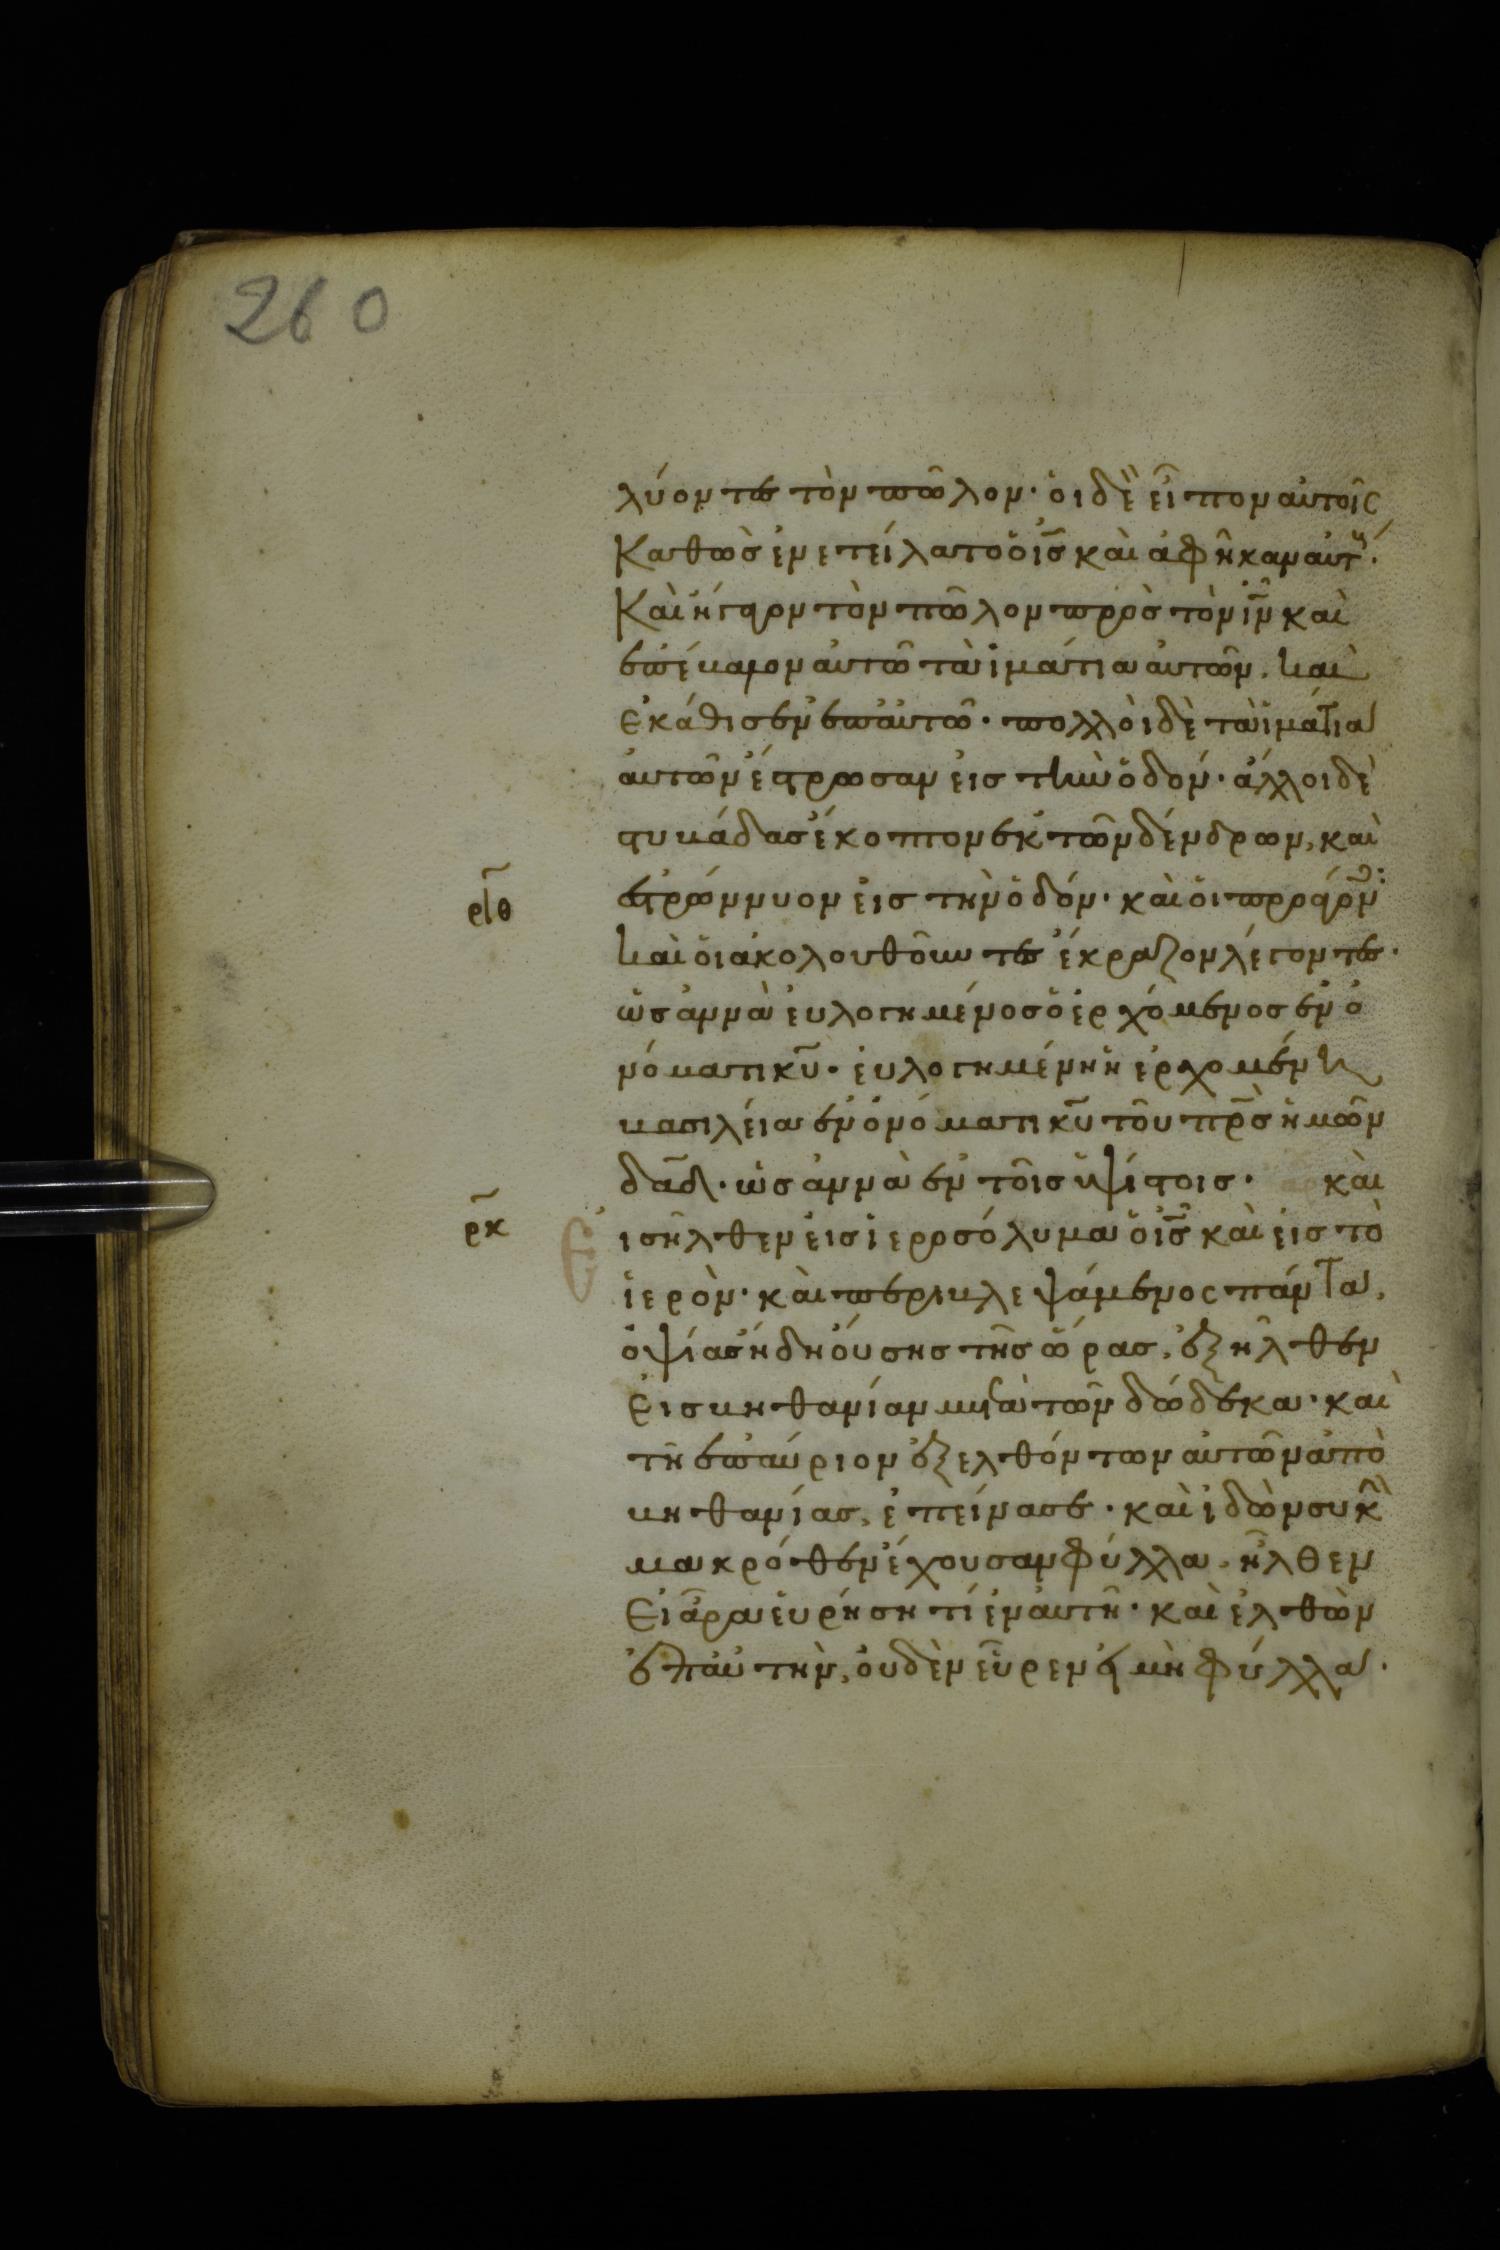 260
λύοντες τὸν πῶλον· ὁι δὲ εἶπον αὐτοῖς
Καθὼς ἐνετείλατο ὁ ἰς̅ καὶ ἀφῆκαν αὐτ(ούς)·
Καὶ ἤγαγον τὸν πῶλον πρὸς τὸν ἰν̅ καὶ
ἐπέβαλον αὐτῶ τὰ ἱμάτια αὐτῶν. καὶ
ἐκάθισεν ἐπ' αὐτῶ· πολλοὶ δὲ τὰ ἱμάτια
ἀυτῶν ἔστρωσαν ἐις τὴν ὁδόν· ἄλλοι δὲ
στιβάδας ἔκοπτον ἐκ τῶν δένδρων, καὶ
ρ̅ι̅θ̅ ἐστρώννυον ἐις τὴν ὁδόν· καὶ ὁι προάγον(τες):
καὶ ὁι ἀκολουθοῦντες ἔκραζον λέγοντες·
ὡσαννὰ ἐυλογημένος ὁ ἐρχόμενος ἐν ὀ
νόματι κυ̅· ἐυλογημένη ἡ ἐρχομένη
βασιλεία ἐν ὀνόματι κυ̅ τοῦ πρ̅ς ἡμῶν
δα̅δ· ὡσαννὰ ἐν τοῖς ὑψίστοις· καὶ
ρ̅κ̅ Εἰσῆλθεν ἐις ἱεροσόλυμα ὁ ἰς̅ καὶ ἐις τὸ
ἱερὸν· καὶ περιβλεψάμενος πάντα,
ὀψίας ἤδη ὀύσης τῆς ὥρας, ἐξῆλθεν
ἐις βηθανίαν μετὰ τῶν δώδεκα· καὶ
τῆ ἐπαύριον ἐξελθόντων αὐτῶν ἀπὸ
βηθανίας, ἐπείνασε· καὶ ἰδὼν συκῆν
μακρόθεν ἔχουσαν φύλλα, ἦλθεν
Εἰ ἆρα ἑυρήση τί ἐν ἀυτῆ· καὶ ἐλθὼν
ἐπ' αὐτὴν, ὀυδὲν εὗρεν εἰ μὴ φύλλα·